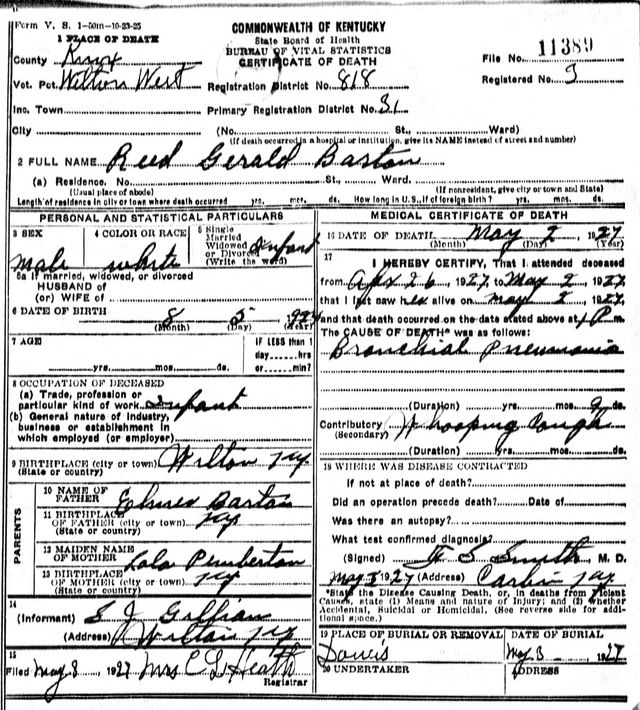 Form V. S. 1-50m-10-23-25
COMMONWEALTH OF KENTUCKY
State Board of Health
BUREAU OF VITAL STATISTICS
CERTIFICATE OF DEATH
File No. 11389
Registered No. 3
1 PLACE OF DEATH
County Knox
Vot. Pct. Wilton West
Registration District No. 818
Inc. Town
Primary Registration District No. 31
City (No. St., Ward)
(If death occurred in a hospital or institution, give its NAME instead of street and number)
2 FULL NAME Reed Gerald Barton
(a) Residence. No. St., Ward.
(Usual place of abode) (If nonresident, give city or town and State)
Length of residence in city or town where death occurred yrs. mos. ds. How long in U.S., if of foreign birth? yrs. mos. ds.
PERSONAL AND STATISTICAL PARTICULARS
3 SEX Male
4 COLOR OR RACE white
5 Single
Married
Widowed
or Divorced
(Write the word) Infant
5a If married, widowed, or divorced
HUSBAND of
(or) WIFE of
6 DATE OF BIRTH 8 5
(Month) (Day) (Year)
7 AGE
yrs. mos. ds.
IF LESS than 1
day hrs
or min?
8 OCCUPATION OF DECEASED
(a) Trade, profession or
particular kind of work Infant
(b) General nature of industry,
business or establishment in
which employed (or employer)
9 BIRTHPLACE (city or town) Wilton Ky
(State or country)
PARENTS
10 NAME OF
FATHER Elmer Barton
11 BIRTHPLACE
OF FATHER (city or town) Ky
(State or country)
12 MAIDEN NAME
OF MOTHER Lola Pemberton
13 BIRTHPLACE
OF MOTHER (city or town) Ky
(State or country)
14
(Informant) S J
(Address) Wilton Ky
15
Filed May 3 1927 Mrs C L Heath
Registrar
MEDICAL CERTIFICATE OF DEATH
16 DATE OF DEATH May 2 1927
(Month) (Day) (Year)
17
I HEREBY CERTIFY, That I attended deceased
from Apr 26, 1927, to May 2, 1927,
that I last saw h alive on May 2, 1927,
and that death occurred on the date stated above at 1 P m.
The CAUSE OF DEATH* was as follows:
Bronchial Pneumonia
(Duration) yrs. mos. 9 ds.
Contributory Whooping Cough
(Secondary)
(Duration) yrs. mos. ds.
18 WHERE WAS DISEASE CONTRACTED
If not at place of death?
Did an operation precede death? Date of
Was there an autopsy?
What test confirmed diagnosis?
(Signed) Smith, M. D.
May 3 1927 (Address) Corbin Ky.
*State the Disease Causing Death, or, in deaths from Violent
Causes, state (1) Means and nature of Injury; and (2) whether
Accidental, Suicidal or Homicidal. (See reverse side for addi-
tional space.)
19 PLACE OF BURIAL OR REMOVAL DATE OF BURIAL
May 3 1927
20 UNDERTAKER ADDRESS